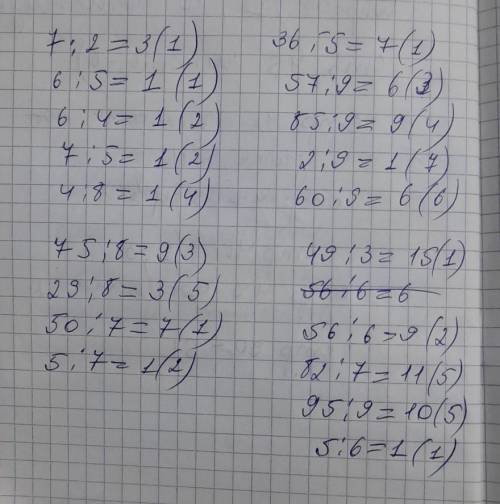 7 : 2 = 3 (1)
6 : 5 = 1 (1)
6 : 4 = 1 (2)
7 : 5 = 1 (2)
4 : 8 = 1 (4)
75 : 8 = 9 (3)
29 : 8 = 3 (5)
50 : 7 = 7 (1)
5 : 7 = 1 (2)
36 : 5 = 7 (1)
57 : 9 = 6 (3)
85 : 9 = 9 (4)
2 : 9 = 1 (7)
60 : 9 = 6 (6)
49 : 3 = 15 (1)
56 : 6 = 6
56 : 6 = 9 (2)
82 : 7 = 11 (5)
95 : 9 = 10 (5)
5 : 6 = 1 (1)